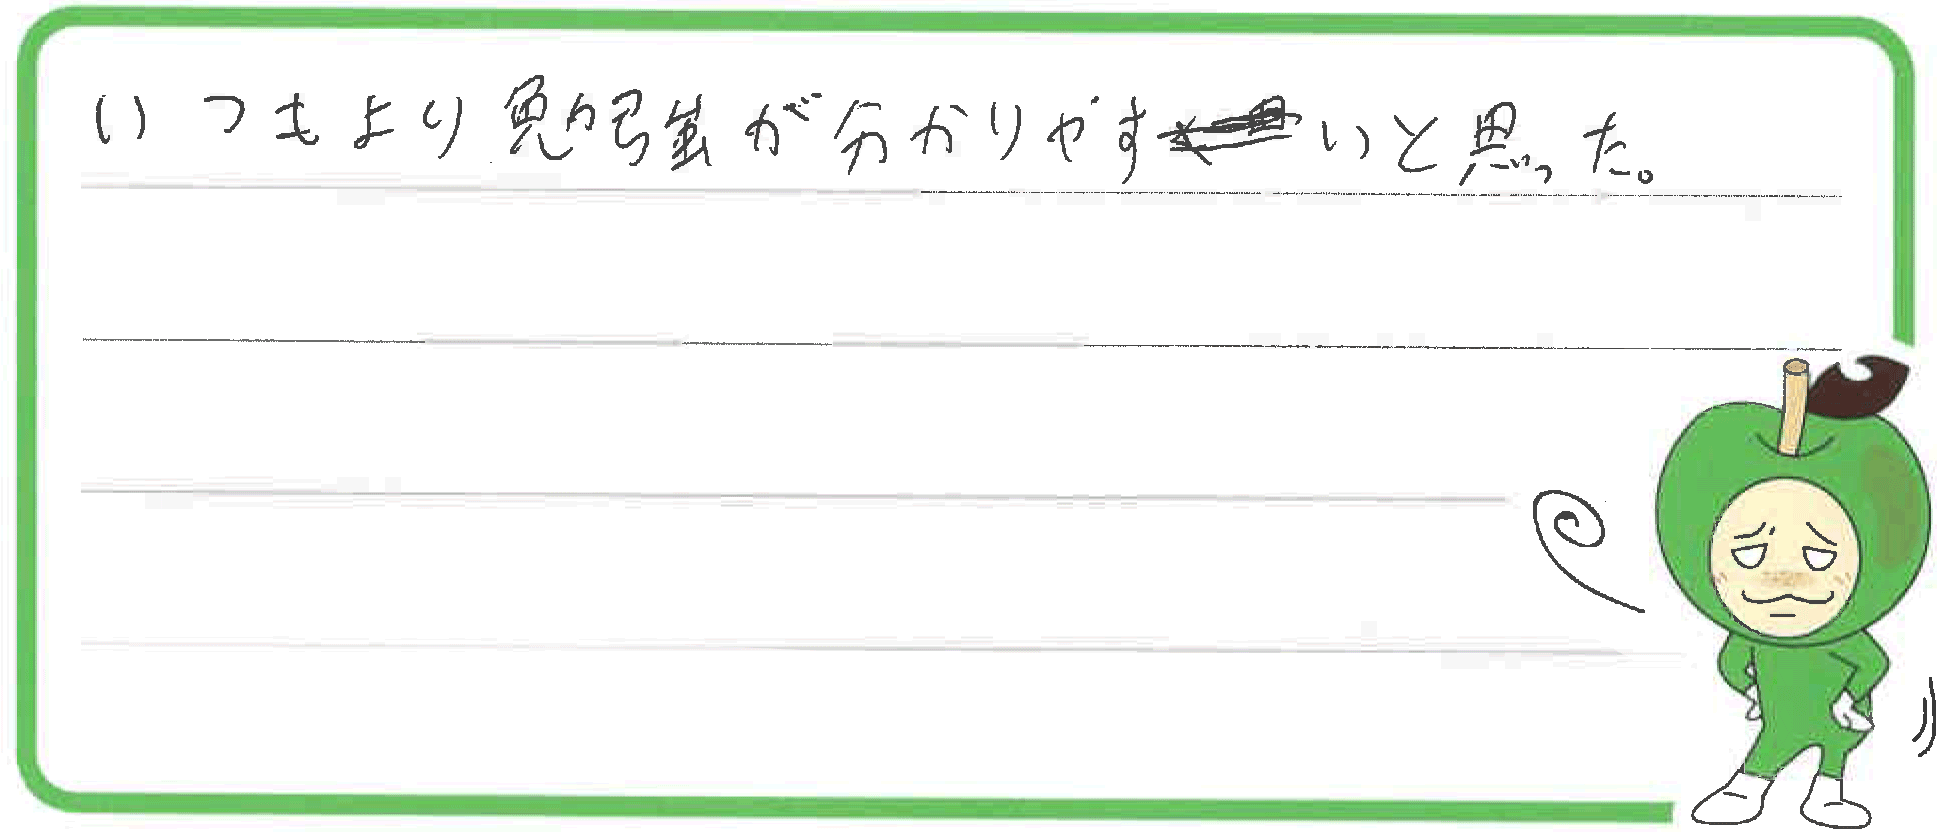 いつもより勉強が分かりやすいと思った。